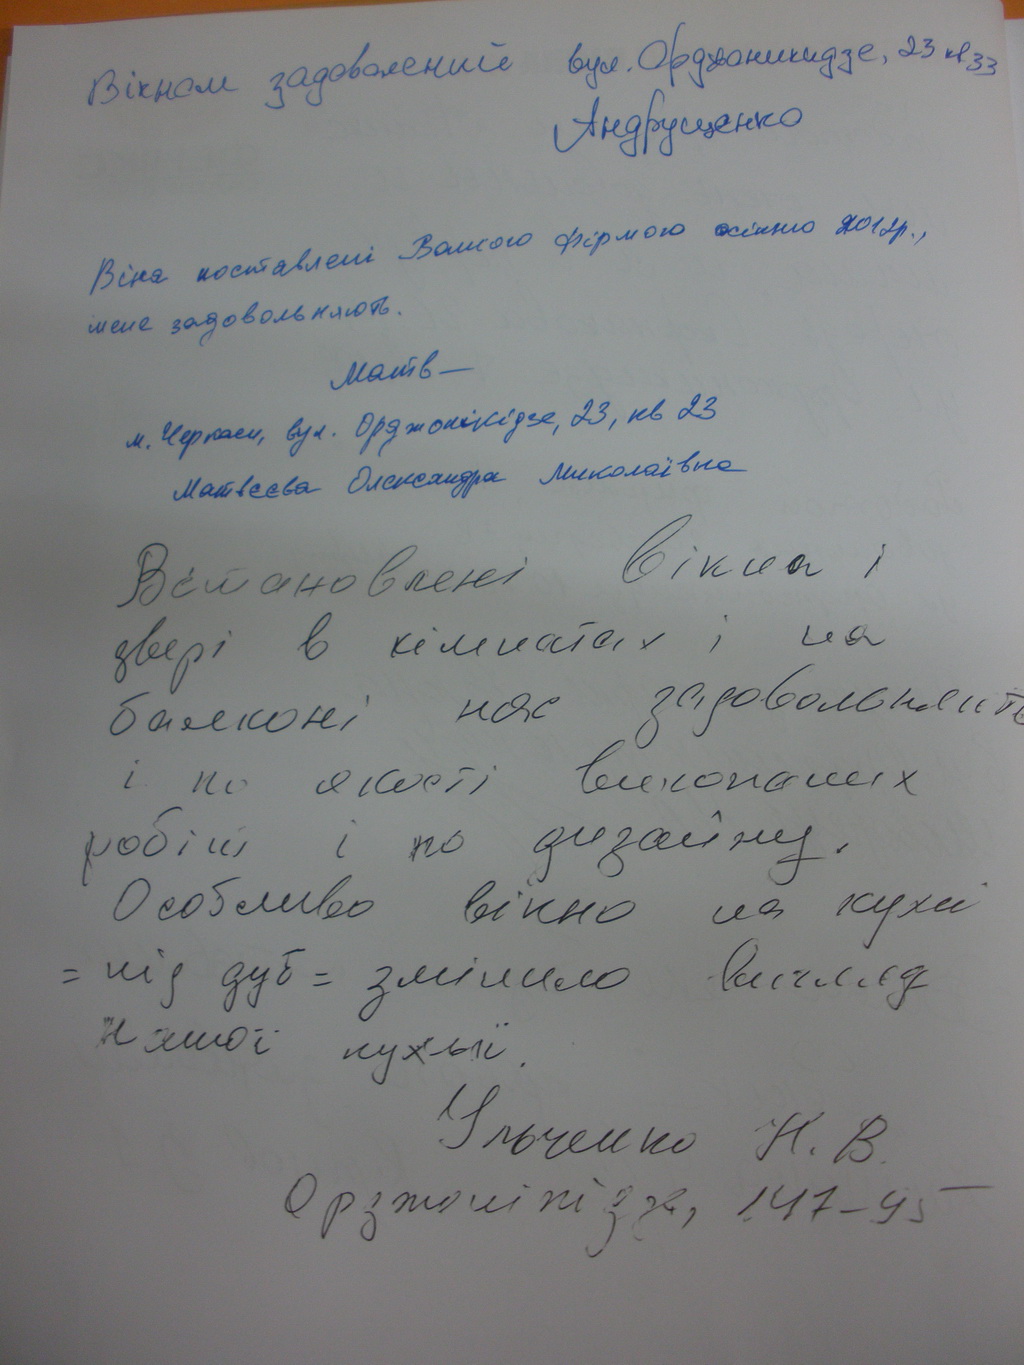 Вікном задоволений вул. Орджоникидзе, 23 кв 33
Андрущенко
Віна поставлені Вашою фірмою осінню 2012р.,
мене задовольняють.
Матв
м. Черкаси, вул. Орджонікідзе, 23, кв 23
Матвєєва Олександра Миколаївна
Встановлені вікна і
двері в кімнатах і на
балконі нас задовольняють
і по якості виконаних
робіт і по дизайну.
Особливо вікно на кухні
= під дуб = змінило вигляд
нашої кухні.
Ільченко Н. В.
Орджонікідзе, 147-95